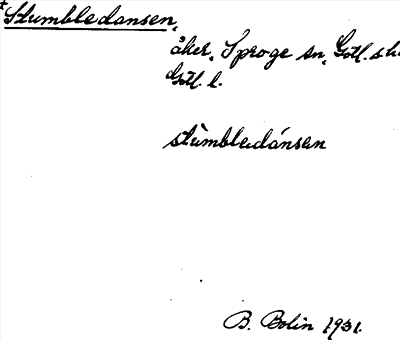 *Stumbledansen,
åker, Sproge sn, Gotl. s h.
Gotl. l.
stùmbledánsen
B. Bolin 1931.